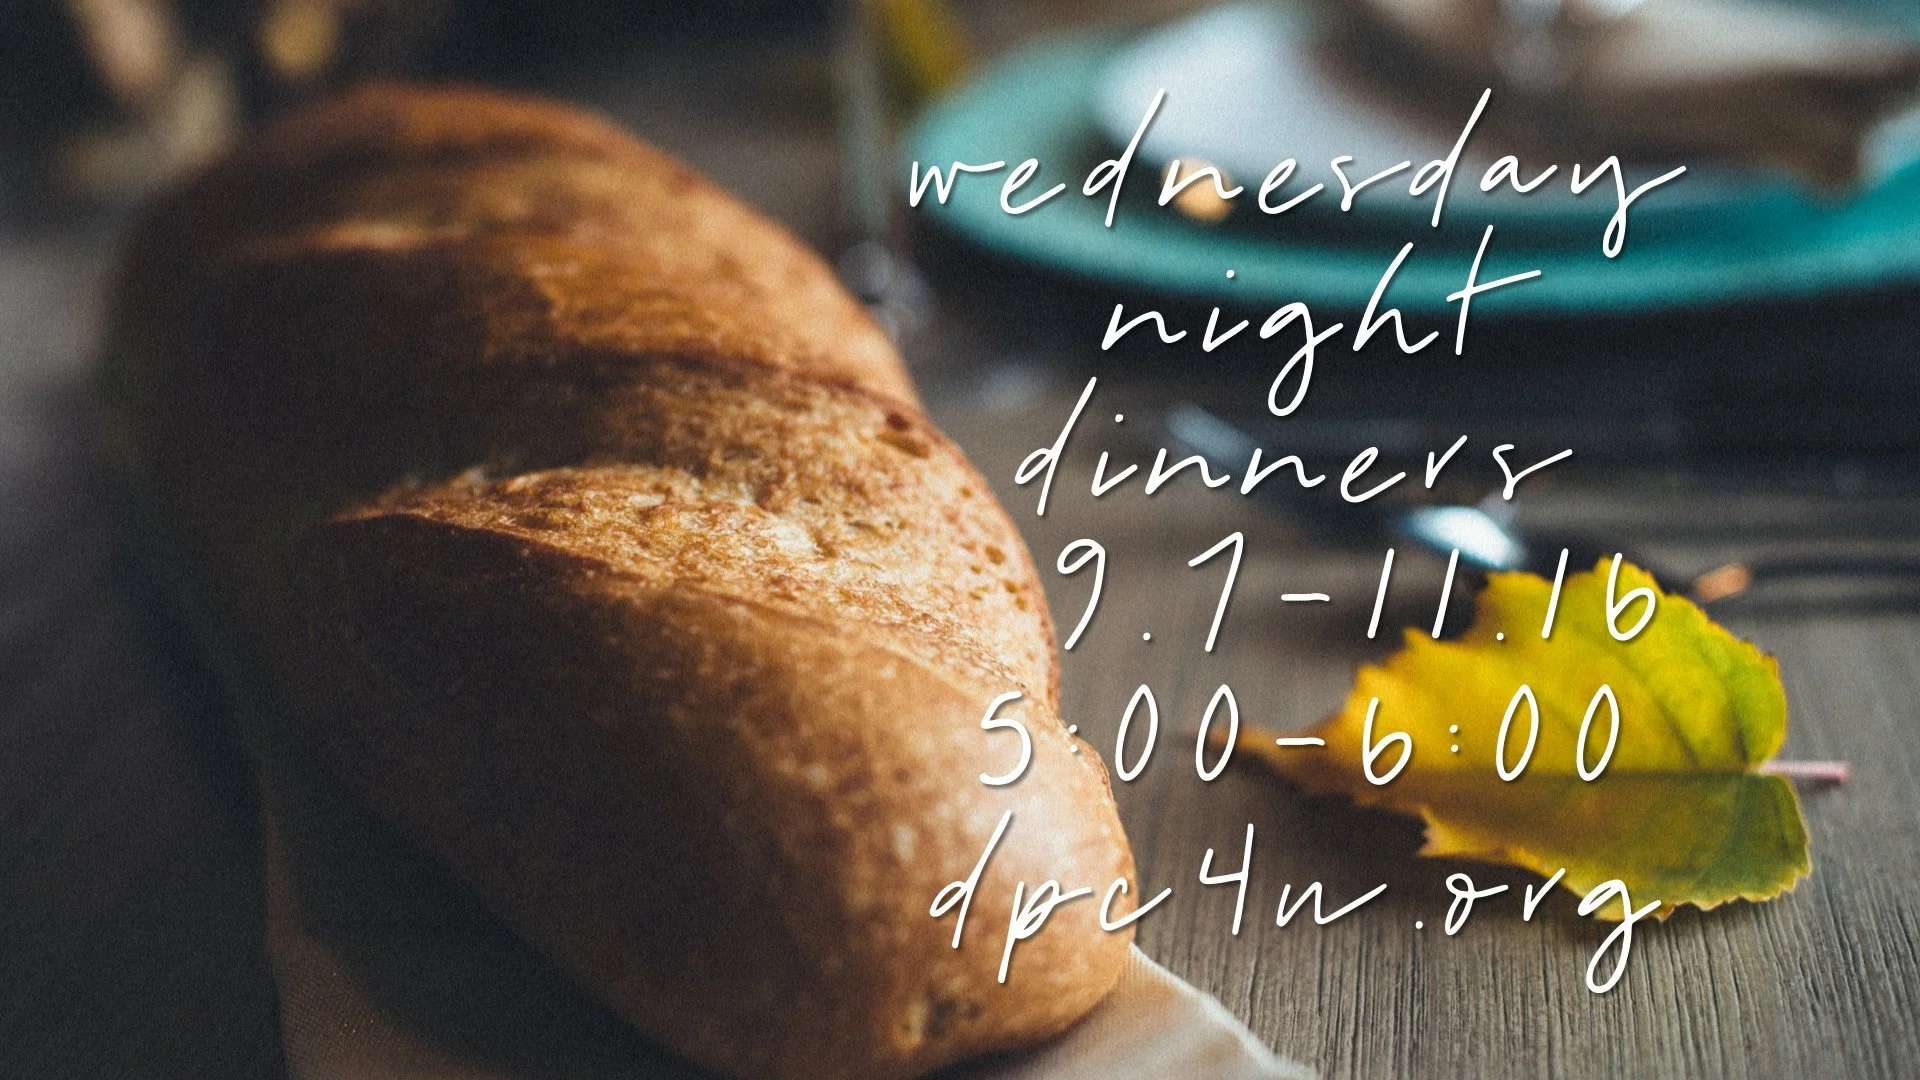 wednesday
night
dinners
9.7-11.16
5:00-6:00
dpc4u.org